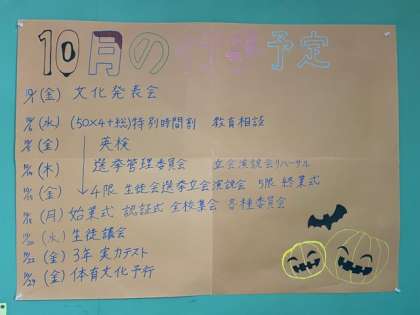 10月の行事予定
10/1 (金) 文化発表会
10/6 (水) (50×4+総)特別時間割 教育相談
10/8 (金) 英検
10/14 (木) 選挙管理委員会 立会演説会リハーサル
10/15 (金) 4限 生徒会選挙立会演説会 5限 終業式
10/18 (月) 始業式 認証式 全校集会 各種委員会
10/20 (水) 生徒議会
10/22 (金) 3年実力テスト
10/29 (金) 体育文化予行